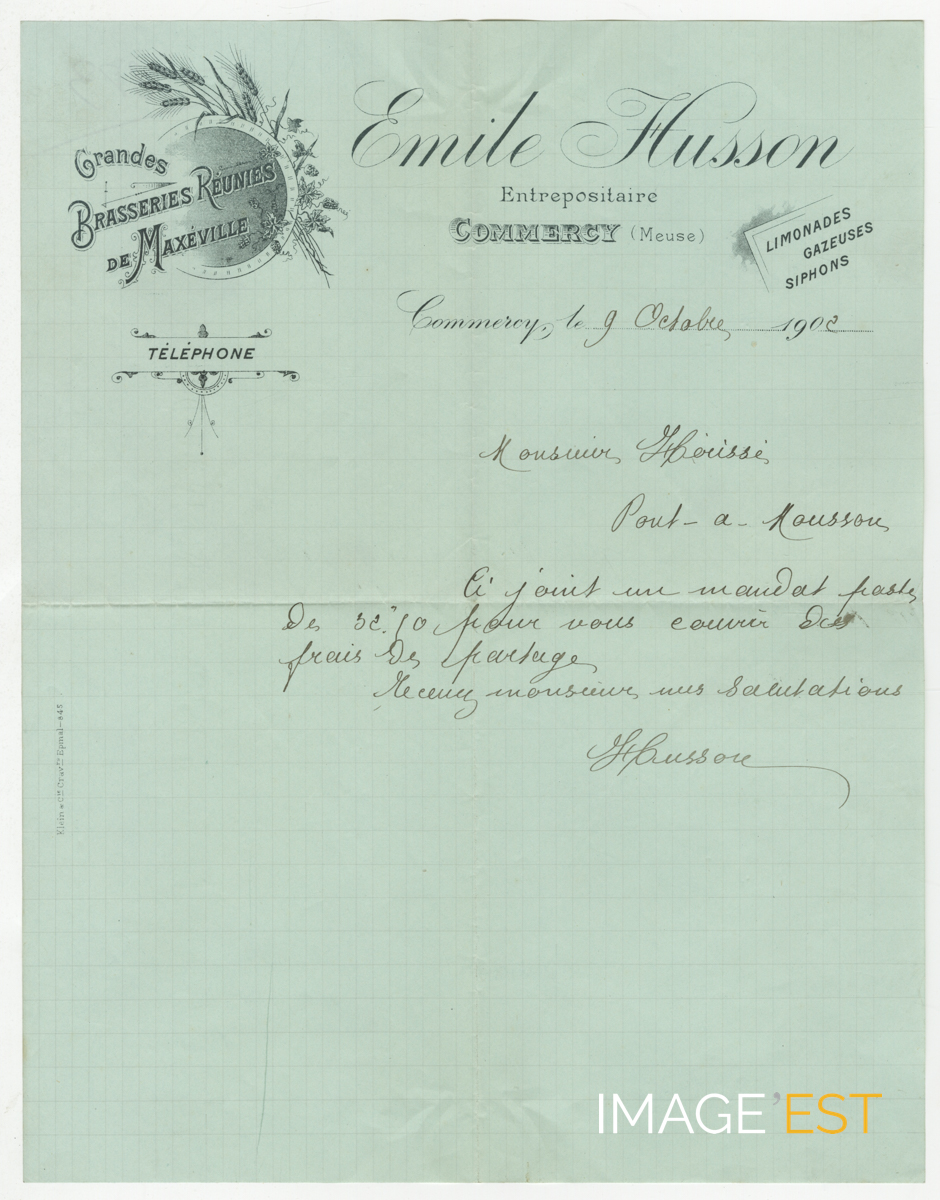 Grandes
BRASSERIES RÉUNIES
DE MAXÉVILLE
Emile Husson
Entrepositaire
COMMERCY (Meuse)
LIMONADES
GAZEUSES
SIPHONS
TÉLÉPHONE
Commercy, le 9 Octobre 1902
Monsieur
Pont-a-Mousson
Ci joint un mandat poste
de pour vous couvrir des
frais de partage
Recevez monsieur mes salutations
Husson
Klein & Cie Epinal-845
IMAGE'EST